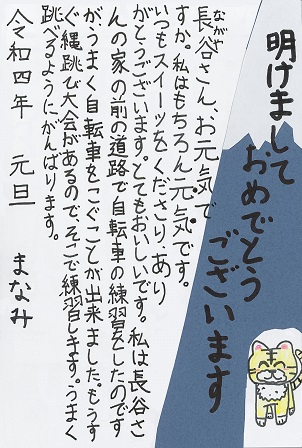 明けまして
おめでとう
ございます
ながや
長谷さん、お元気で
すか。私はもちろん元気です。
いつもスイーツをくださり、あり
がとうございます。とてもおいしいです。私は長谷さ
んの家の前の道路で自転車の練習をしたのです
がうまく自転車をこぐことが出来ました。もうす
ぐ縄跳び大会があるので、そこで練習します。うまく
跳べるようにがんばります。
令和四年　元旦
まなみ